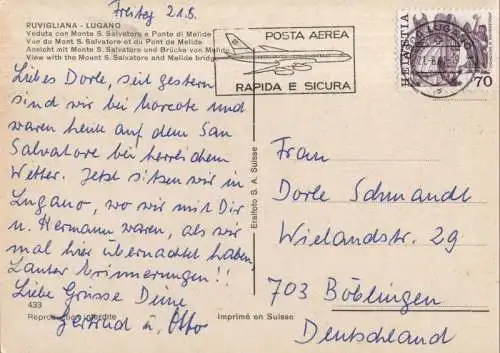 RUVIGLIANA - LUGANO
Veduta con Monte S. Salvatore e Ponte di Melide
Vue du Mont S. Salvatore et du Pont de Melide
Ansicht mit Monte S. Salvatore und Brücke von Melide
View with the Mount S. Salvatore and Melide bridge
Freitag 21.8.
Liebes Dorle, seit gestern
sind wir bei Morcote und
waren heute auf dem San
Salvatore bei herrlichem
Wetter. Jetzt sitzen wir in
Lugano, wo wir mit Dir
u. Hermann waren, als wir
mal hier übernachtet haben.
Lauter Erinnerungen!!
Liebe Grüsse Deine
Gertrud u. Otto
433
Reproduction interdite
Imprimé en Suisse
Eralfoto S. A. Suisse
POSTA AEREA
RAPIDA E SICURA
HELVETIA
70
LUGANO
Frau
Dorle Schmandt
Wielandstr. 29
703 Böblingen
Deutschland